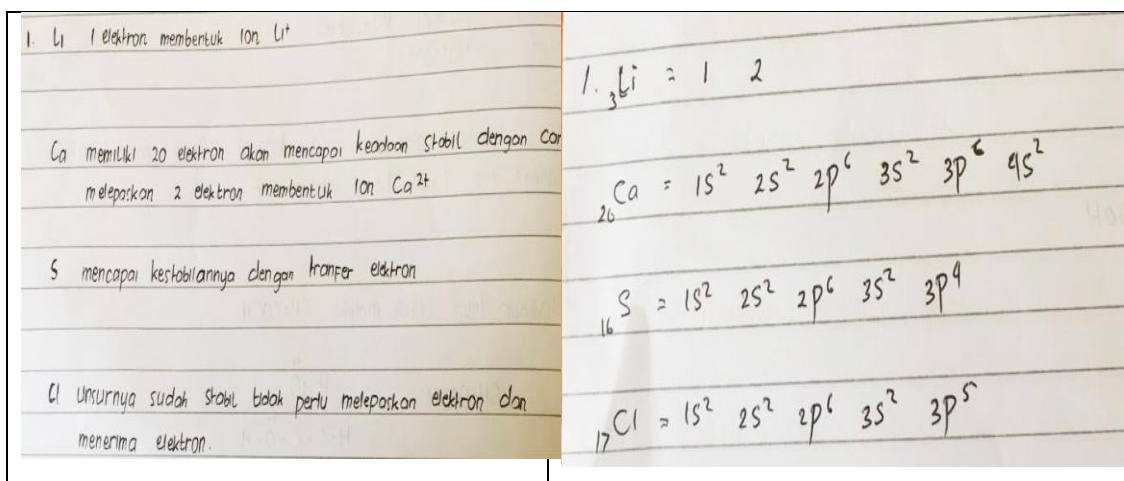 1. Li 1 elektron membentuk ion Li⁺
Ca memiliki 20 elektron akan mencapai keadaan stabil dengan car
melepaskan 2 elektron membentuk ion Ca²⁺
S mencapai kestabilannya dengan tranfer elektron
Cl Unsurnya sudah stabil tidak perlu melepaskan elektron dan
menerima elektron.
1. ₃Li = 1 2
₂₀Ca = 1s² 2s² 2p⁶ 3s² 3p⁶ 4s²
₁₆S = 1s² 2s² 2p⁶ 3s² 3p⁴
₁₇Cl = 1s² 2s² 2p⁶ 3s² 3p⁵